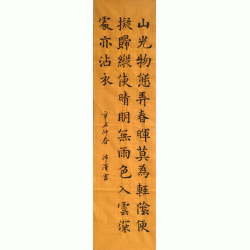 山光物態弄春暉莫為輕陰便
擬歸縱使晴明無雨色入雲深
處亦沾衣
辛丑仲春 書